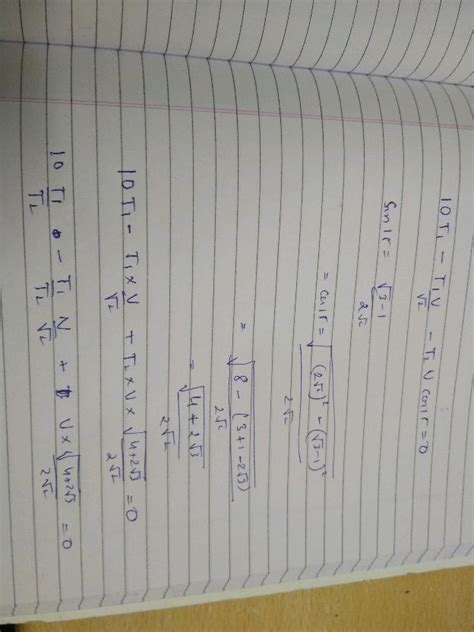 10T₁ - T₁V/√2 - T₂ V cos15 = 0
sin15 = (√3-1)/2√2
= cos15 = √((2√2)² - (√3-1)²)/2√2
= √(8 - (3+1-2√3))/2√2
= √(4+2√3)/2√2
10T₁ - T₁ × V/√2 + T₂ × V × √(4+2√3)/2√2 = 0
10 T₁/T₂ - T₁/T₂ V/√2 + V × √(4+2√3)/2√2 = 0